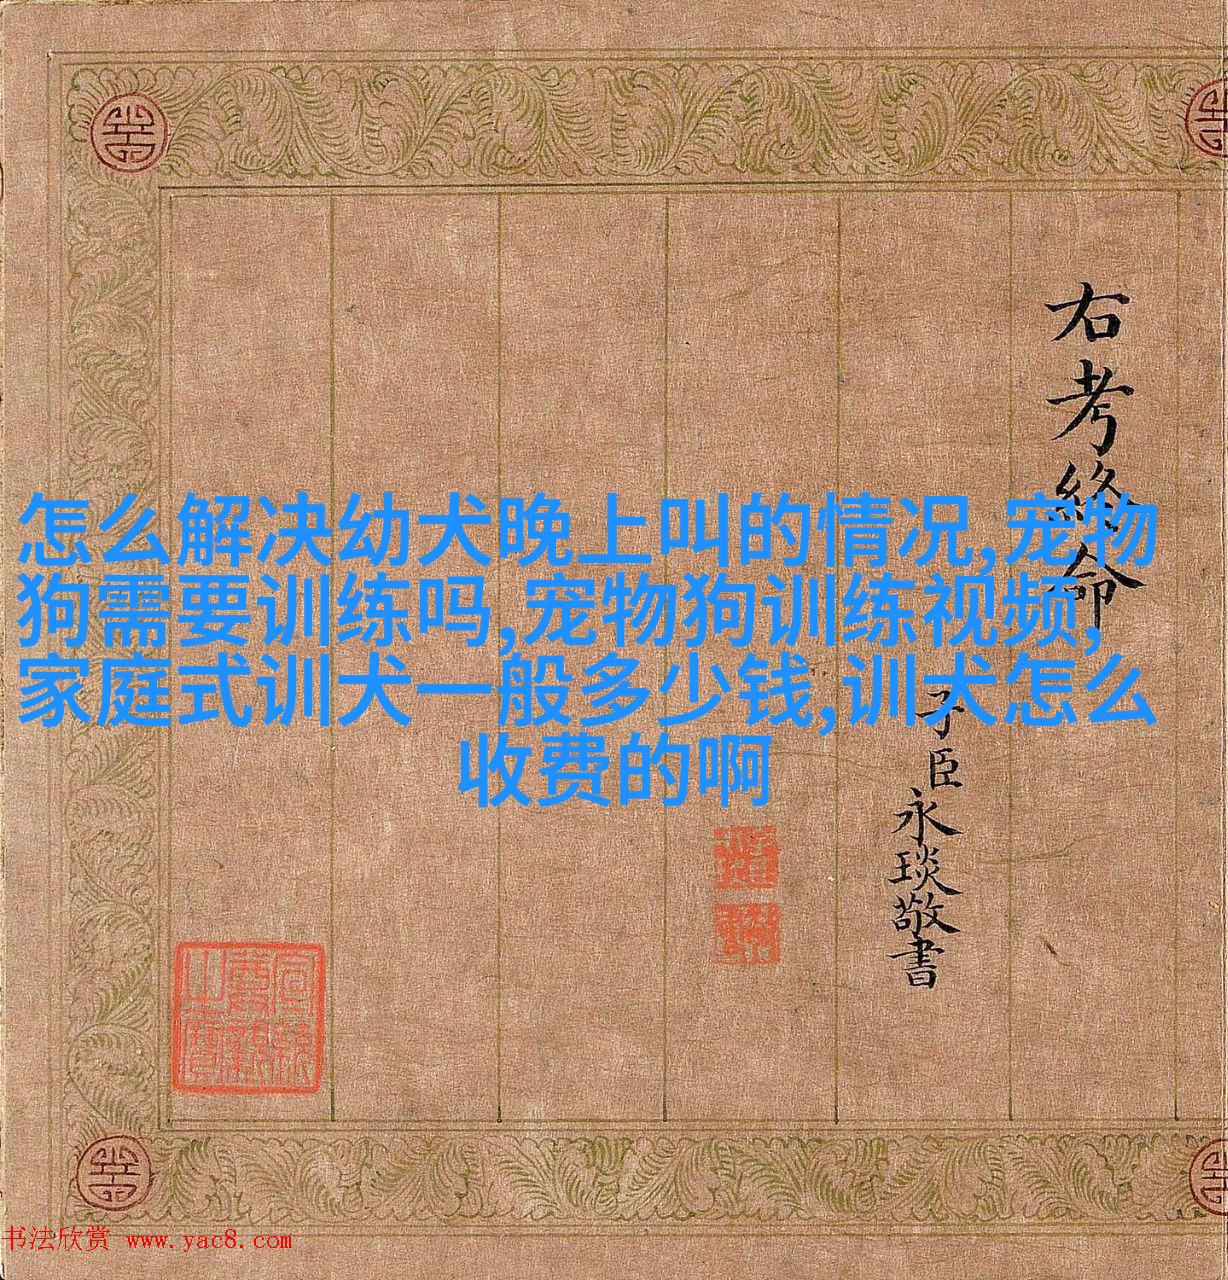 右考終命
子臣永琰敬書
怎么解决幼犬晚上叫的情况,宠物
狗需要训练吗,宠物狗训练视频,
家庭式训犬一般多少钱,训犬怎么
收费的啊
书法欣赏 www.yac8.com